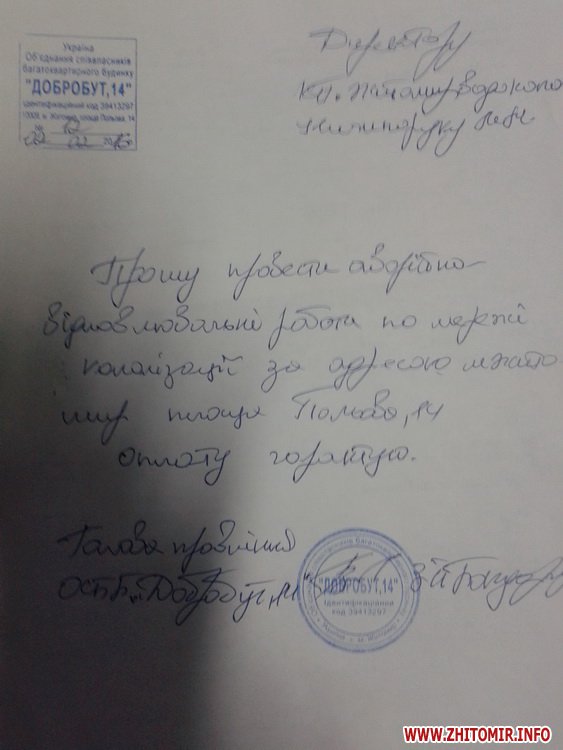 Україна
Об'єднання співвласників
багатоквартирного будинку
"ДОБРОБУТ,14"
ідентифікаційний код 39413297
м. Житомир, площа Польова, 14
№ 12
22 02 20
Директору
КП "Житомирводоканал
Никитюку
Прошу провести аварійно-
відновлювальні роботи по мережі
каналізації за адресою м.Жито
мир площа Польова, 14
оплату гарантую.
Голова правління
ОСББ "Добробут, 14"
"ДОБРОБУТ,14"
ідентифікаційний
код 39413297
WWW.ZHITOMIR.INFO